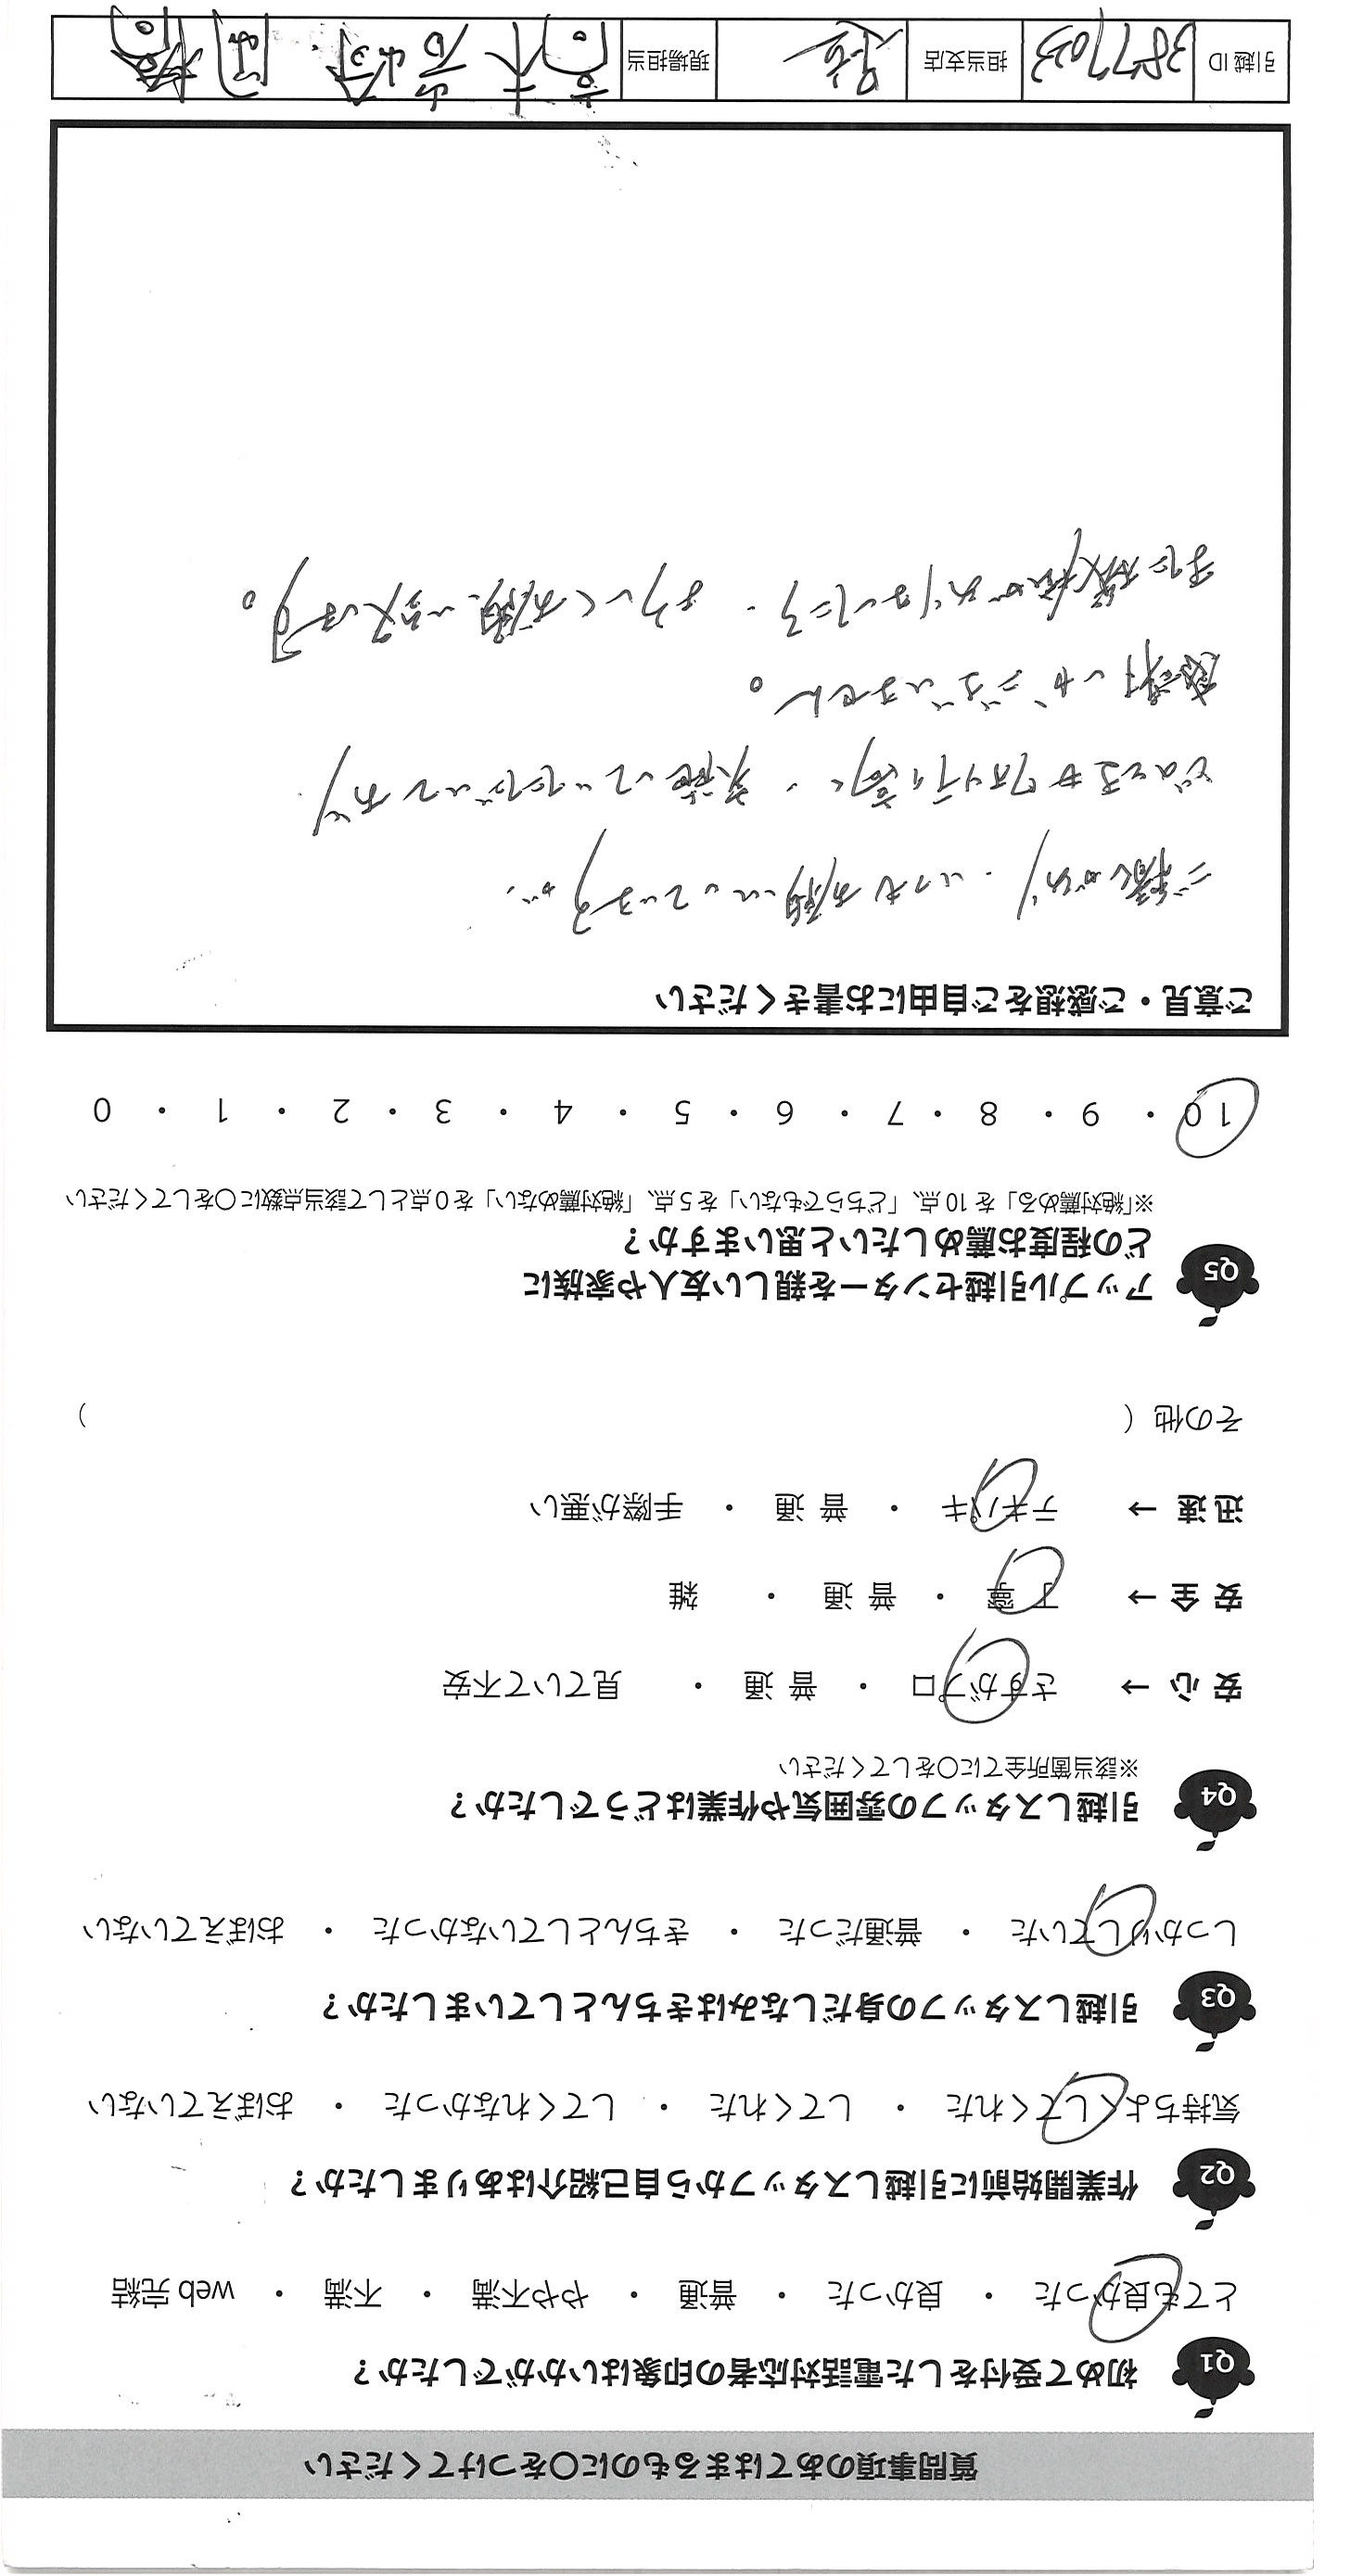 質問事項のあてはまるものに○をつけてください
Q1 初めて受付をした電話対応者の印象はいかがでしたか？
とても良かった ・ 良かった ・ 普通 ・ やや不満 ・ 不満 ・ web 完結
Q2 作業開始前に引越しスタッフから自己紹介はありましたか？
気持ちよくしてくれた ・ してくれた ・ してくれなかった ・ おぼえていない
Q3 引越しスタッフの身だしなみはきちんとしていましたか？
しっかりしていた ・ 普通だった ・ きちんとしていなかった ・ おぼえていない
Q4 引越しスタッフの雰囲気や作業はどうでしたか？
※該当箇所全てに○をしてください
安 心 → さすがプロ ・ 普 通 ・ 見ていて不安
安 全 → 丁 寧 ・ 普 通 ・ 雑
迅 速 → テキパキ ・ 普 通 ・ 手際が悪い
その他（ ）
Q5 アップル引越センターを親しい友人や家族に
どの程度お薦めしたいと思いますか？
※「絶対薦める」を 10 点、「どちらでもない」を 5 点、「絶対薦めない」を 0 点として該当点数に○をしてください
10 ・ 9 ・ 8 ・ 7 ・ 6 ・ 5 ・ 4 ・ 3 ・ 2 ・ 1 ・ 0
ご意見・ご感想をご自由にお書きください
ご縁があり、いつもお願いしていますが、
どの子もクオリティ高く、失礼していただいており
感謝しかございません。
また機会がありましたら、よろしくお願い致します。
引越 ID 3877023 担当支店 現場担当 高木 岩崎 岡 高橋